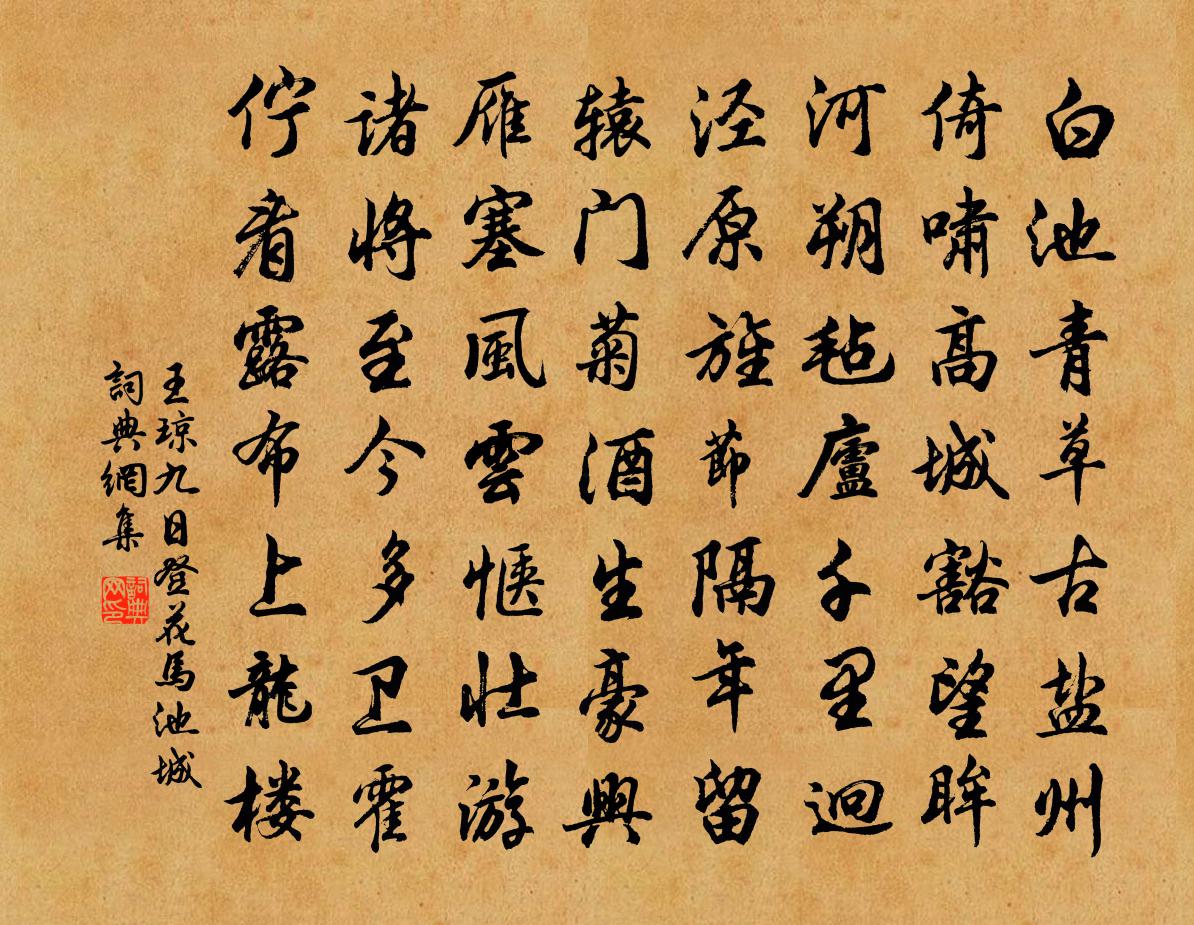 白池青草古盐州
倚啸高城豁望眸
河朔毡廬千里迥
泾原旌節隔年留
辕门菊酒生豪興
雁塞風雲惬壮游
诸将至今多卫霍
佇看露布上龍楼
王琼九日登花馬池城
詞典網集
詞典网印